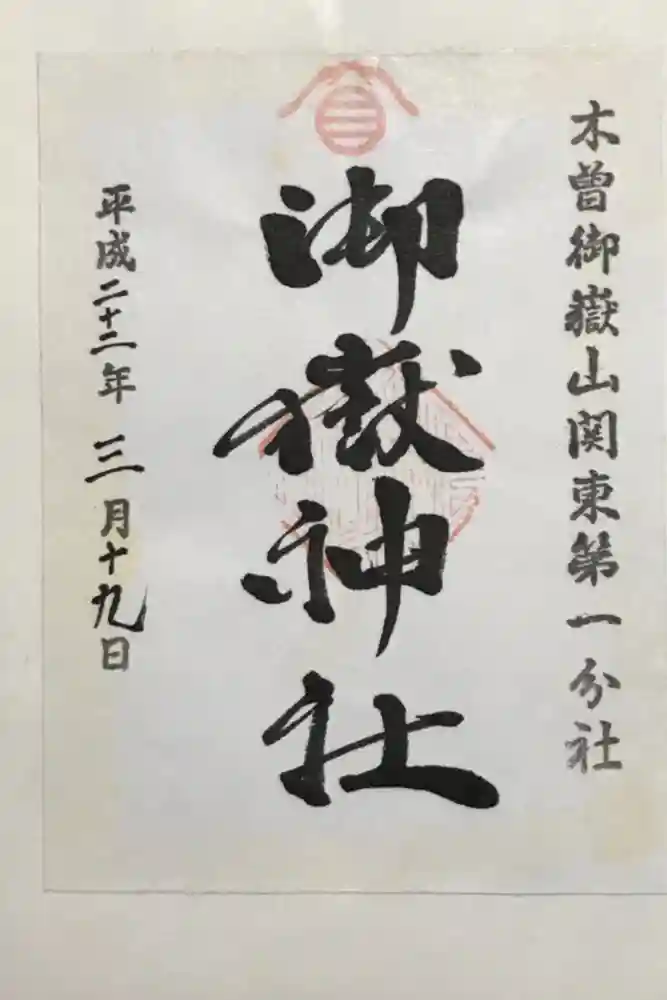 木曽御嶽山関東第一分社
御嶽神社
平成二十二年三月十九日